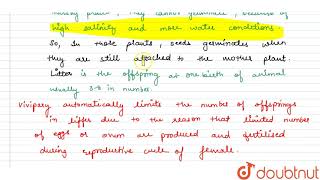 mother plant, They cannot germinate, because of
high salinity and more water conditions
So, In those plants, seeds germinates when
they are still attached to the mother plant.
Litter is the offspring at one birth of animal
usually 3-8 in number.
Vivipary automatically limits the number of offsprings
in litter due to the reason that limited number
of eggs or ovum are produced and fertilised
during reproductive cycle of female.
doubtnut